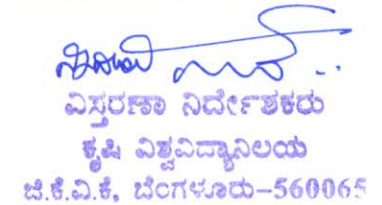 ವಿಸ್ತರಣಾ ನಿರ್ದೇಶಕರು
ಕೃಷಿ ವಿಶ್ವವಿದ್ಯಾನಿಲಯ
ಜಿ.ಕೆ.ವಿ.ಕೆ, ಬೆಂಗಳೂರು-560065